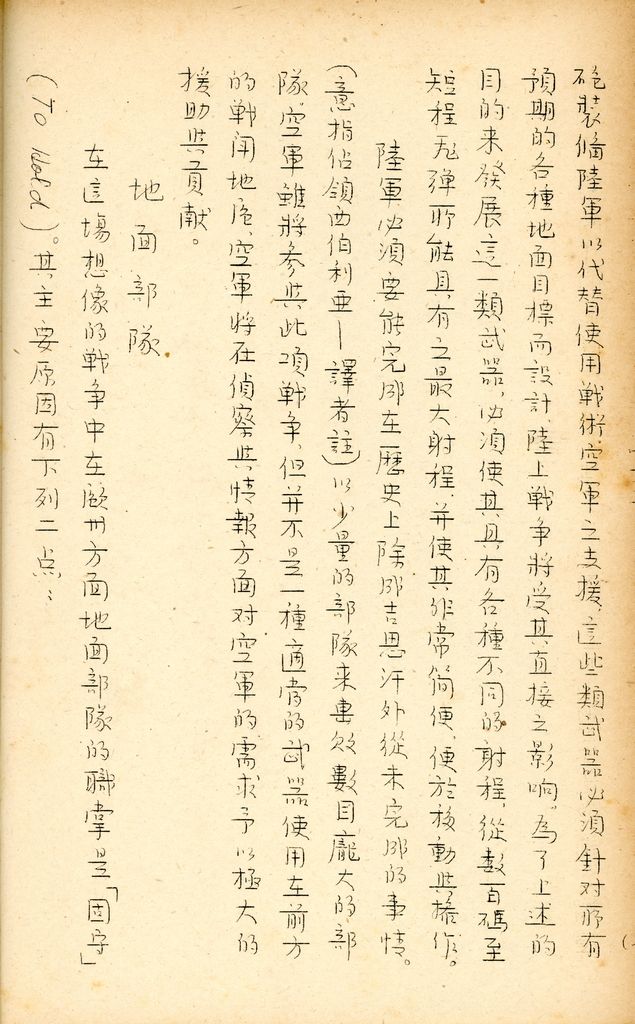 砲裝備陸軍以代替使用戰術空軍之支援，這些類武器必須針对所有
預期的各種地面目標而設計，陸上戰爭將受其直接之影响。為了上述的
目的来發展這一類武器，必須使其具有各種不同的射程，從數百碼至
短程飛弹所能具有之最大射程，并使其非常简便，便於移動與操作。
陸軍必須要能完成在歷史上除成吉思汗外從未完成的事情。
（意指佔領西伯利亚—譯者註）以少量的部隊来擊敗數目龐大的部
隊，空軍雖將參與此項戰爭，但并不是一種適當的武器使用在前方
的戰鬥地區，空軍將在偵察與情報方面对空軍的需求予以極大的
援助與貢献。
地面部隊
在這場想像的戰爭中在歐州方面地面部隊的職掌是「固守」
(To Hold)。其主要原因有下列二点：